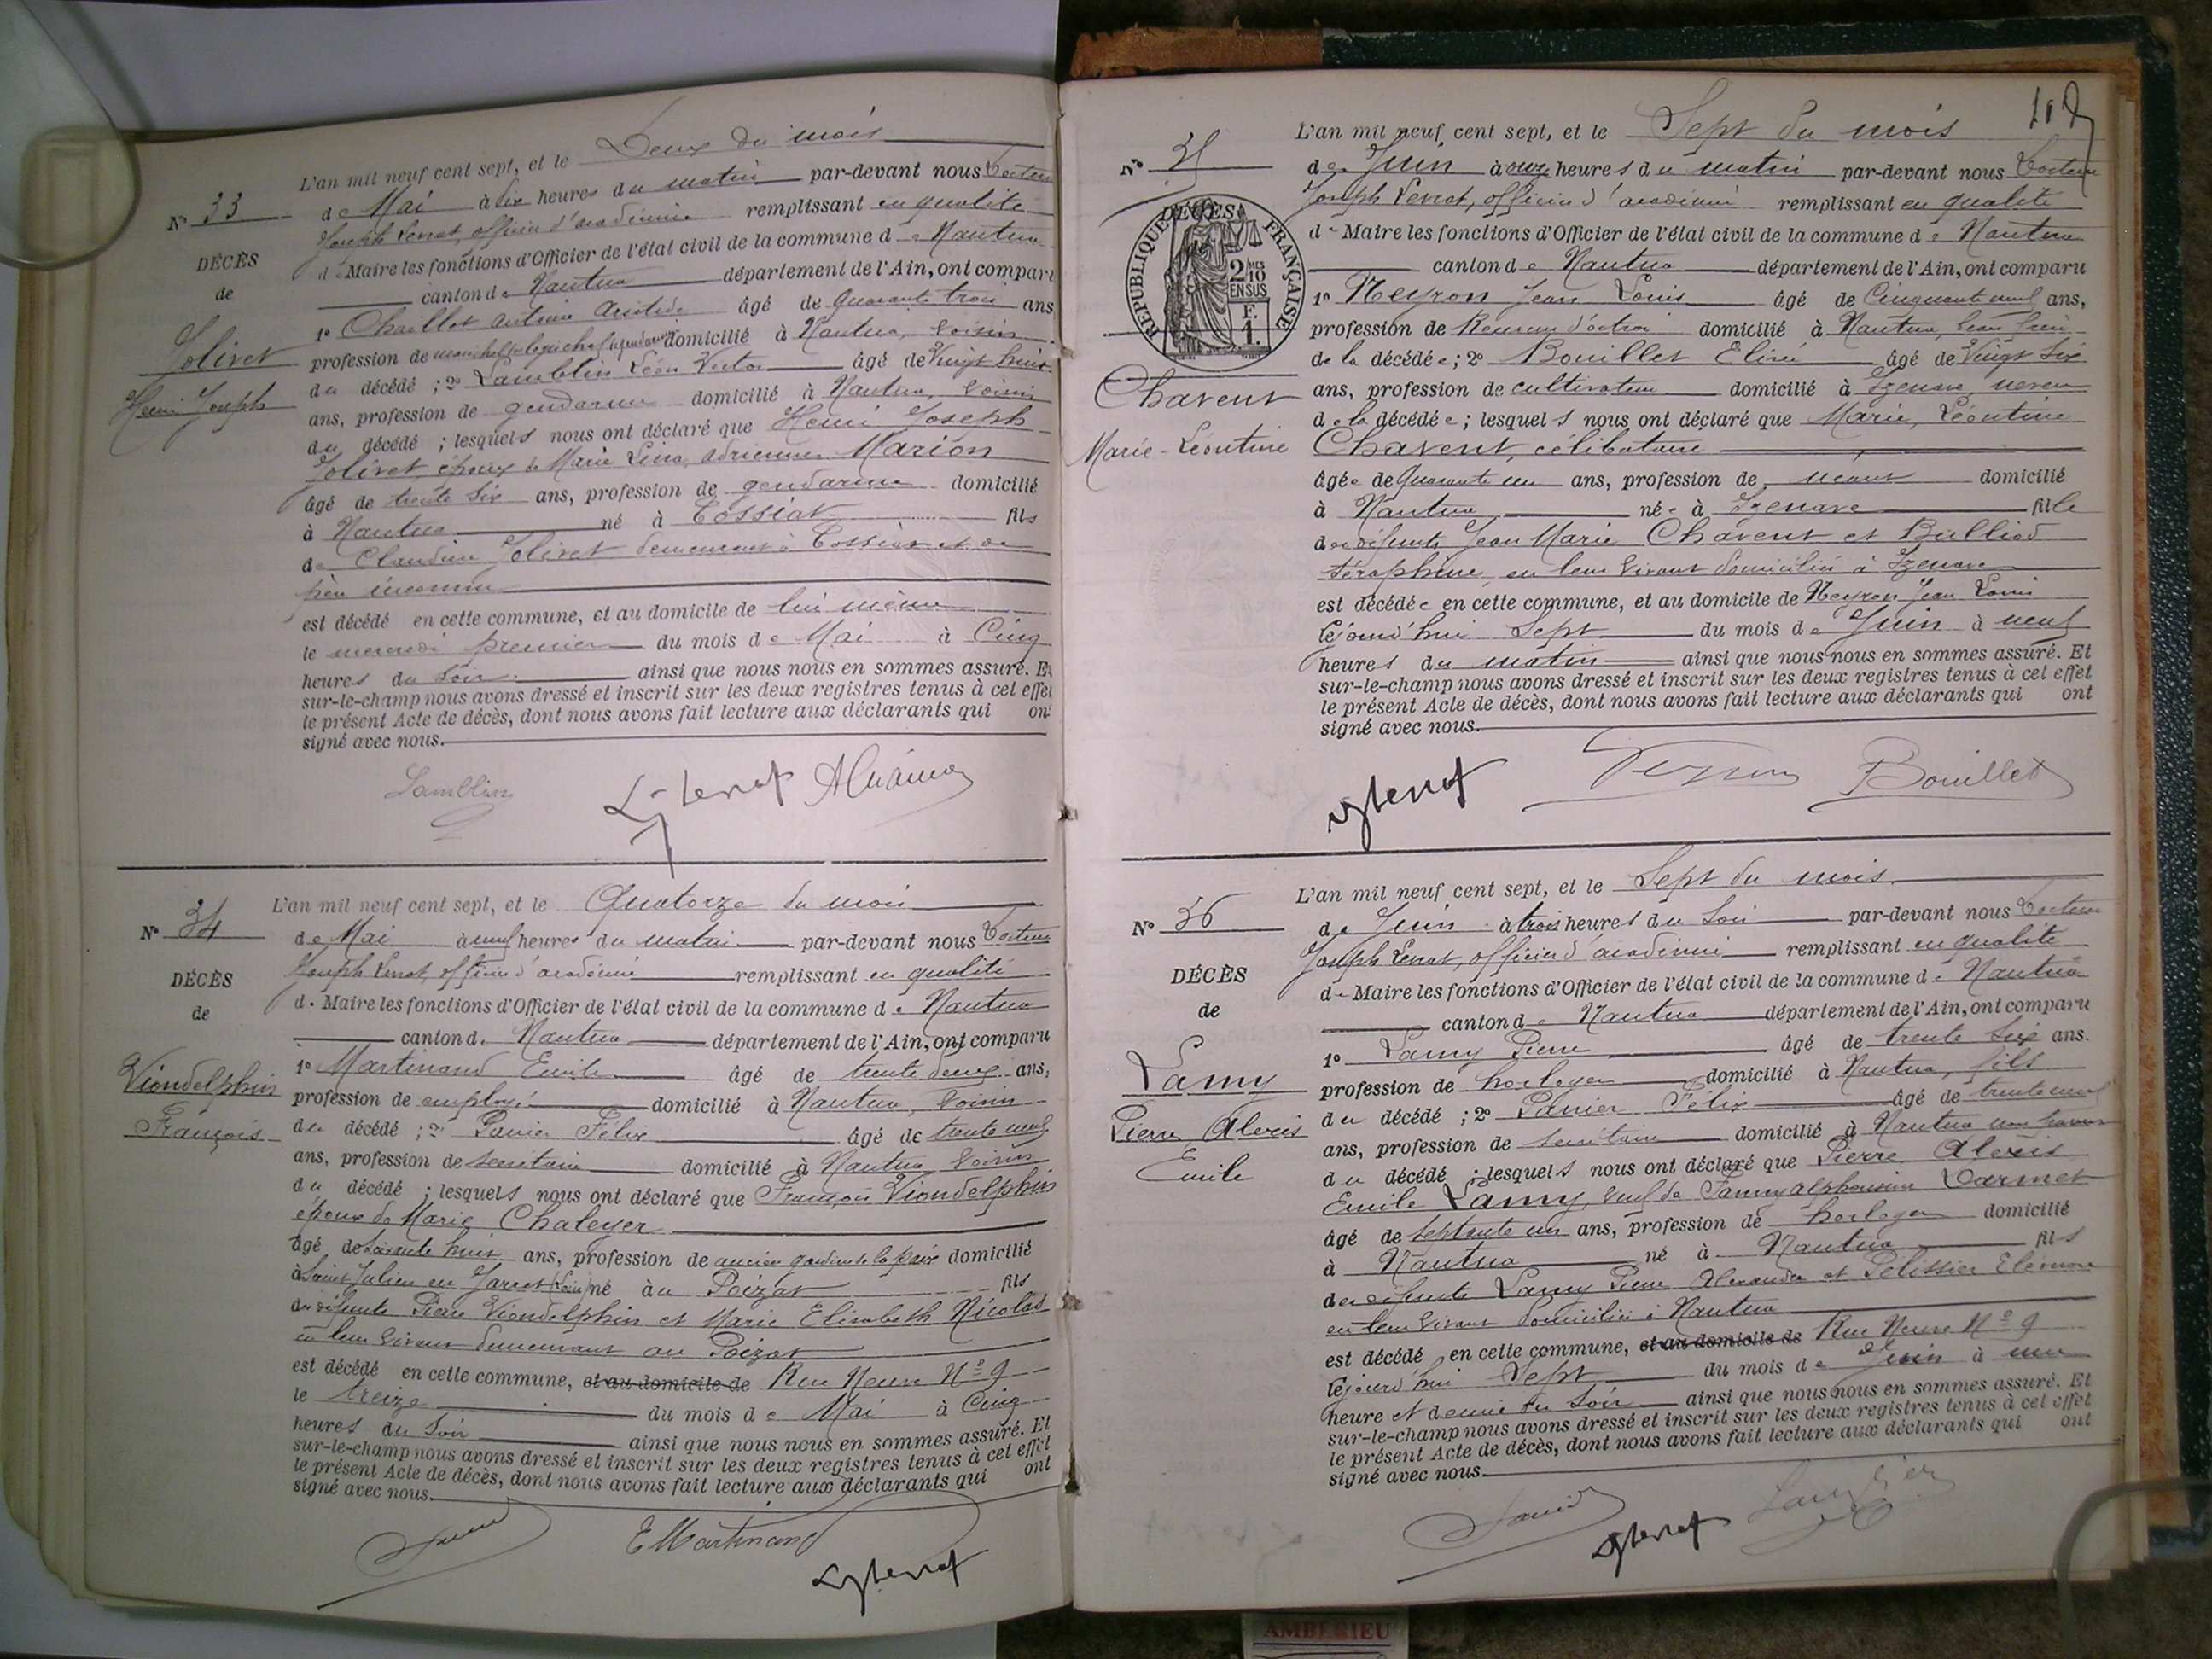 Deux du mois
L'an mil neuf cent sept, et le
N° 33
de Mai à dix heures du matin par-devant nous Docteur
Joseph Levrat, officier d'académie remplissant en qualité
DÉCÈS
de Maire les fonctions d'Officier de l'état civil de la commune de Nantua
de
canton de Nantua département de l'Ain, ont comparu
1° Chaillot Antoine Aristide âgé de quarante trois ans
Jolivet
profession de domicilié à Nantua, voisin
Henri Joseph
du décédé ; 2° Lamblin Léon Victor âgé de vingt huit
ans, profession de gendarme domicilié à Nantua, voisin
du décédé ; lesquels nous ont déclaré que Henri Joseph
Jolivet époux de Marie Lina Adrienne Marion
âgé de trente six ans, profession de gendarme domicilié
à Nantua né à Tossiat fils
de Claudine Jolivet demeurant à Tossiat et de
père inconnu
est décédé en cette commune, et au domicile de lui même
le mercredi premier du mois de Mai à Cinq
heures du soir ainsi que nous nous en sommes assuré. Et
sur-le-champ nous avons dressé et inscrit sur les deux registres tenus à cet effet
le présent Acte de décès, dont nous avons fait lecture aux déclarants qui ont
signé avec nous.
Lamblin
L'an mil neuf cent sept, et le Quatorze du mois
N° 34
de Mai à neuf heures du matin par-devant nous Docteur
Joseph Levrat, officier d'académie remplissant en qualité
DÉCÈS
de Maire les fonctions d'Officier de l'état civil de la commune de Nantua
de
canton de Nantua département de l'Ain, ont comparu
Viondelphin
1° Martinand Emile âgé de trente deux ans,
profession de employé domicilié à Nantua, voisin
François
du décédé ; 2° Panier Félix âgé de trente neuf
ans, profession de secrétaire domicilié à Nantua voisin
du décédé ; lesquels nous ont déclaré que François Viondelphin
époux de Marie Chaleyer
âgé de soixante huit ans, profession de ancien gardien de la paix domicilié
à Saint Julien en Jarret (Loire) né au Poizat fils
de défunts Pierre Viondelphin et Marie Elisabeth Nicolas
en leur vivant demeurant au Poizat
est décédé en cette commune, et au domicile de Rue Neuve N° 9
le treize du mois de Mai à Cinq
heures du soir ainsi que nous nous en sommes assuré. Et
sur-le-champ nous avons dressé et inscrit sur les deux registres tenus à cet effet
le présent Acte de décès, dont nous avons fait lecture aux déclarants qui ont
signé avec nous.
E Martinand
L'an mil neuf cent sept, et le Sept du mois
N° 35
de Juin à onze heures du matin par-devant nous Docteur
Joseph Levrat, officier d'académie remplissant en qualité
DÉCÈS
REPUBLIQUE FRANÇAISE
2/10 EN SUS
F. 1.
de Maire les fonctions d'Officier de l'état civil de la commune de Nantua
canton de Nantua département de l'Ain, ont comparu
1° Neyron Jean Louis âgé de Cinquante neuf ans,
profession de Receveur d'octroi domicilié à Nantua, beau frère
de la décédée ; 2° Bouillet Elisé âgé de vingt six
Chavent
ans, profession de cultivateur domicilié à Izenave, neveu
de la décédée ; lesquels nous ont déclaré que Marie, Léontine
Marie-Léontine
Chavent, célibataire
âgée de Quarante un ans, profession de néant domicilié
à Nantua née à Izenave fille
de défunts Jean Marie Chavent et Bulliod
Séraphine, en leur vivant domiciliés à Izenave
est décédée en cette commune, et au domicile de Neyron Jean Louis
cejourd'hui Sept du mois de Juin à neuf
heures du matin ainsi que nous nous en sommes assuré. Et
sur-le-champ nous avons dressé et inscrit sur les deux registres tenus à cet effet
le présent Acte de décès, dont nous avons fait lecture aux déclarants qui ont
signé avec nous.
Bouillet
L'an mil neuf cent sept, et le Sept du mois
N° 36
de Juin à trois heures du soir par-devant nous Docteur
Joseph Levrat, officier d'académie remplissant en qualité
DÉCÈS
de Maire les fonctions d'Officier de l'état civil de la commune de Nantua
de
canton de Nantua département de l'Ain, ont comparu
1° Lamy Pierre âgé de trente six ans.
Lamy
profession de horloger domicilié à Nantua, fils
Pierre Alexis
du décédé ; 2° Panier Félix âgé de trente neuf
Emile
ans, profession de secrétaire domicilié à Nantua non parent
du décédé ; lesquels nous ont déclaré que Pierre Alexis
Emile Lamy, veuf de Fanny Alphonsine Darmet
âgé de septante un ans, profession de horloger domicilié
à Nantua né à Nantua fils
de défunts Lamy Pierre Alexandre et Pelissier Eléonore
en leur vivant domiciliés à Nantua
est décédé en cette commune, et au domicile de Rue Neuve N° 9
cejourd'hui Sept du mois de Juin à une
heure et demie du soir ainsi que nous nous en sommes assuré. Et
sur-le-champ nous avons dressé et inscrit sur les deux registres tenus à cet effet
le présent Acte de décès, dont nous avons fait lecture aux déclarants qui ont
signé avec nous.
AMBERIEU